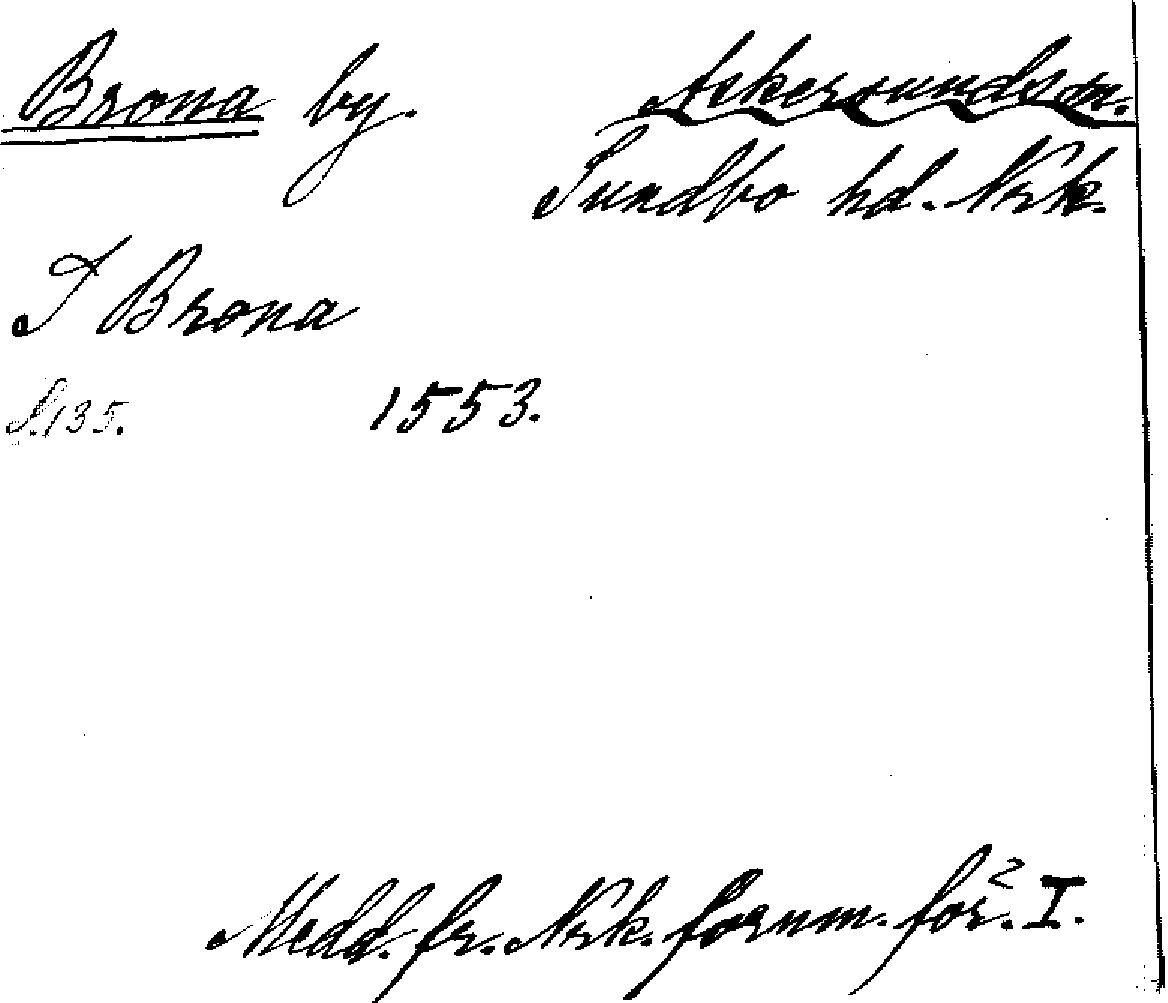 Brona by. Askersunds sn.
Sundbo hd. Nrk.
I Brona
S. 135. 1553.
Medd. fr. Nrk. fornm. för. I.